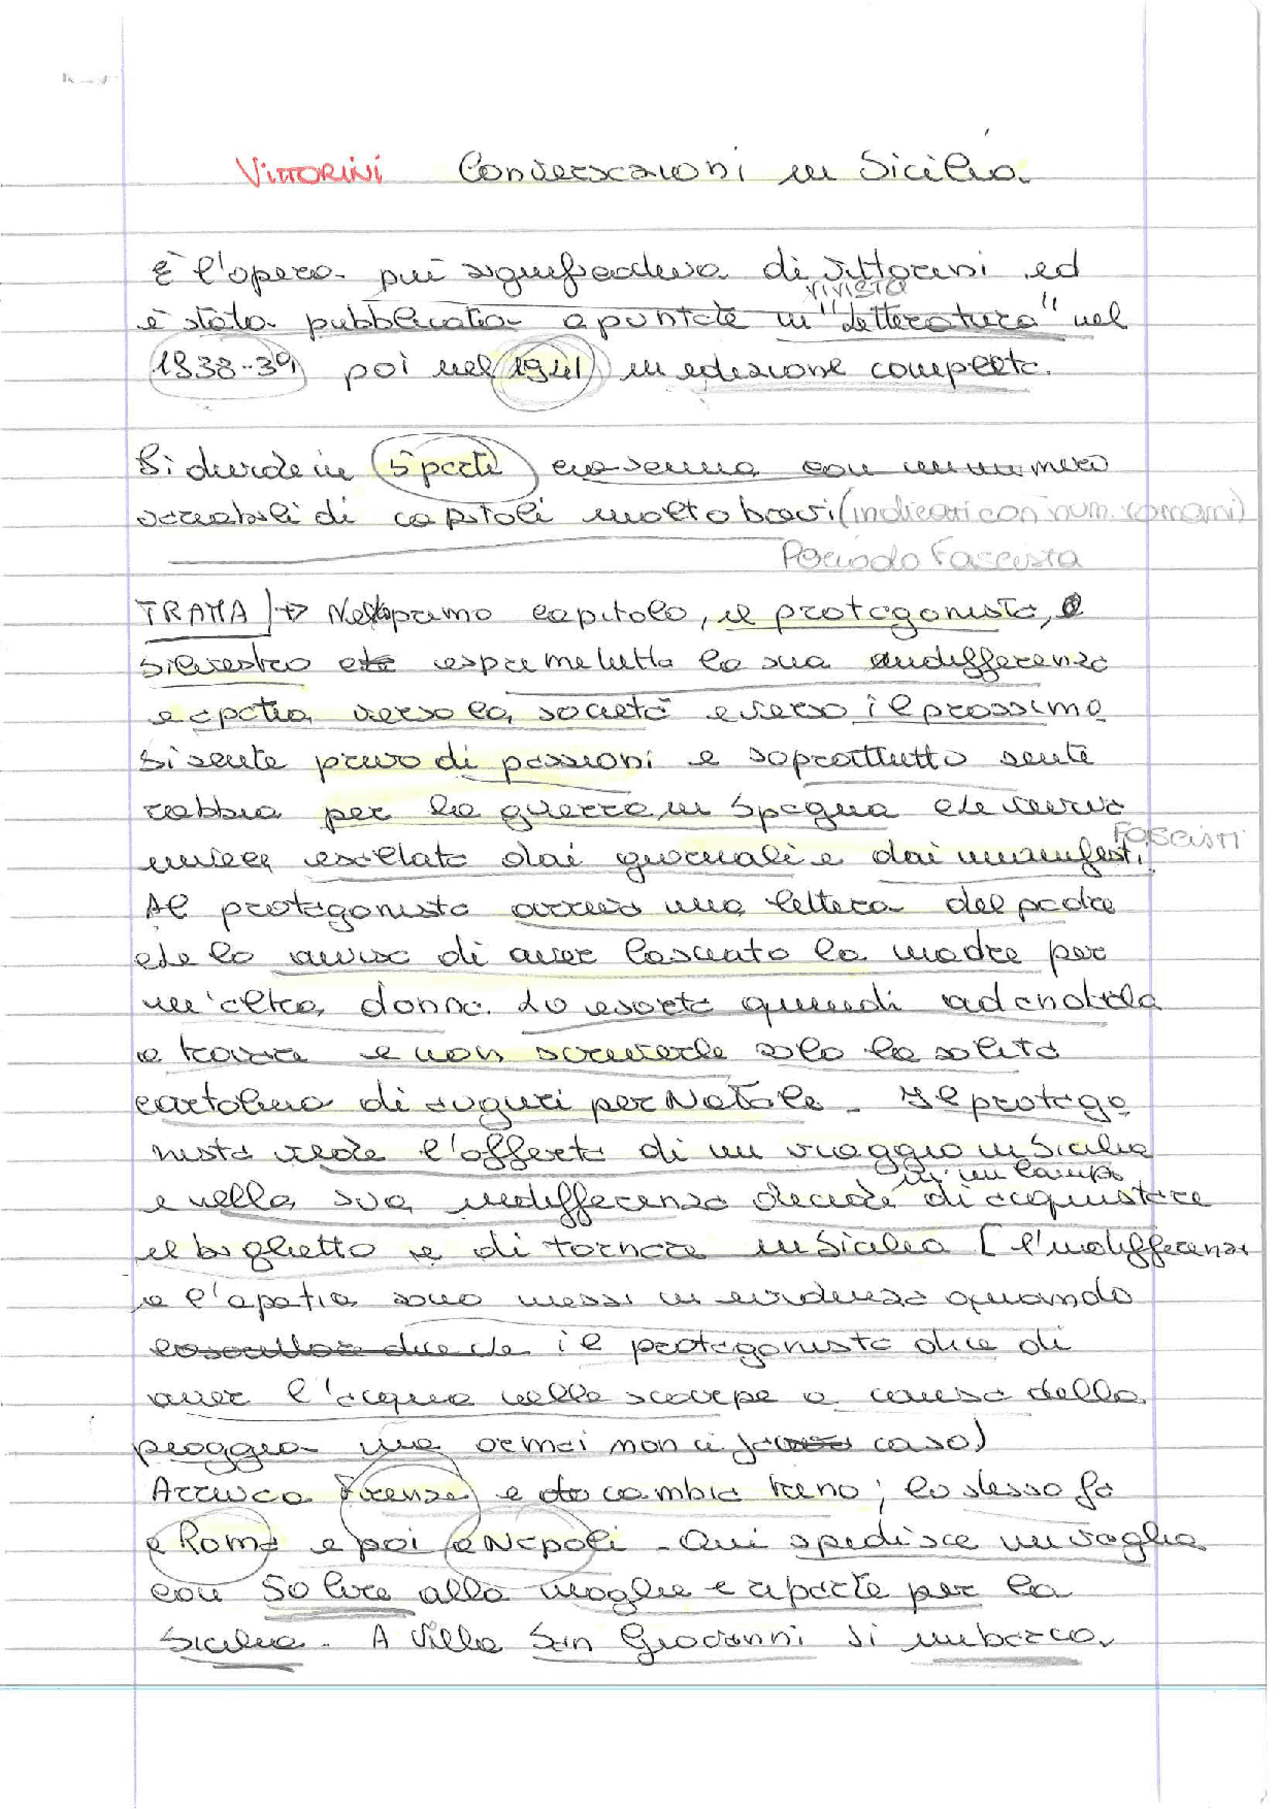 VITTORINI Conversazioni in Sicilia.
È l'opera più significativa di Vittorini ed
rivista
è stata pubblicata a puntate in "Letteratura" nel
1938-39 poi nel 1941 in edizione completa.
Si divide in 5 parti ciascuna con un numero
variabili di capitoli molto brevi (indicati con num. romani)
Periodo Fascista
TRAMA → Nel primo capitolo, il protagonista,
Silvestro esprime tutta la sua indifferenza
e apatia verso la società e verso il prossimo
Si sente privo di passioni e soprattutto sente
rabbia per la guerra in Spagna che veniva
Fascisti
invece esaltata dai giornali e dai manifesti.
Al protagonista arriva una lettera del padre
che lo avvisa di aver lasciato la madre per
un'altra donna. Lo esorta quindi ad andarla
a trovare e non scriverle solo la solita
cartolina di auguri per Natale. Il protago
nista vede l'offerta di un viaggio in Sicilia
in un lampo
e nella sua indifferenza decide di acquistare
il biglietto e di tornare in Sicilia [l'indifferenza
e l'apatia sono messi in evidenza quando
il protagonista dice di
aver l'acqua nelle scarpe a causa della
pioggia ma ormai non ci fa caso)
Arriva a Firenze e cambia treno; lo stesso fa
a Roma e poi a Napoli. Qui spedisce un vaglia
con 50 lire alla moglie e riparte per la
Sicilia. A Villa San Giovanni si imbarca.